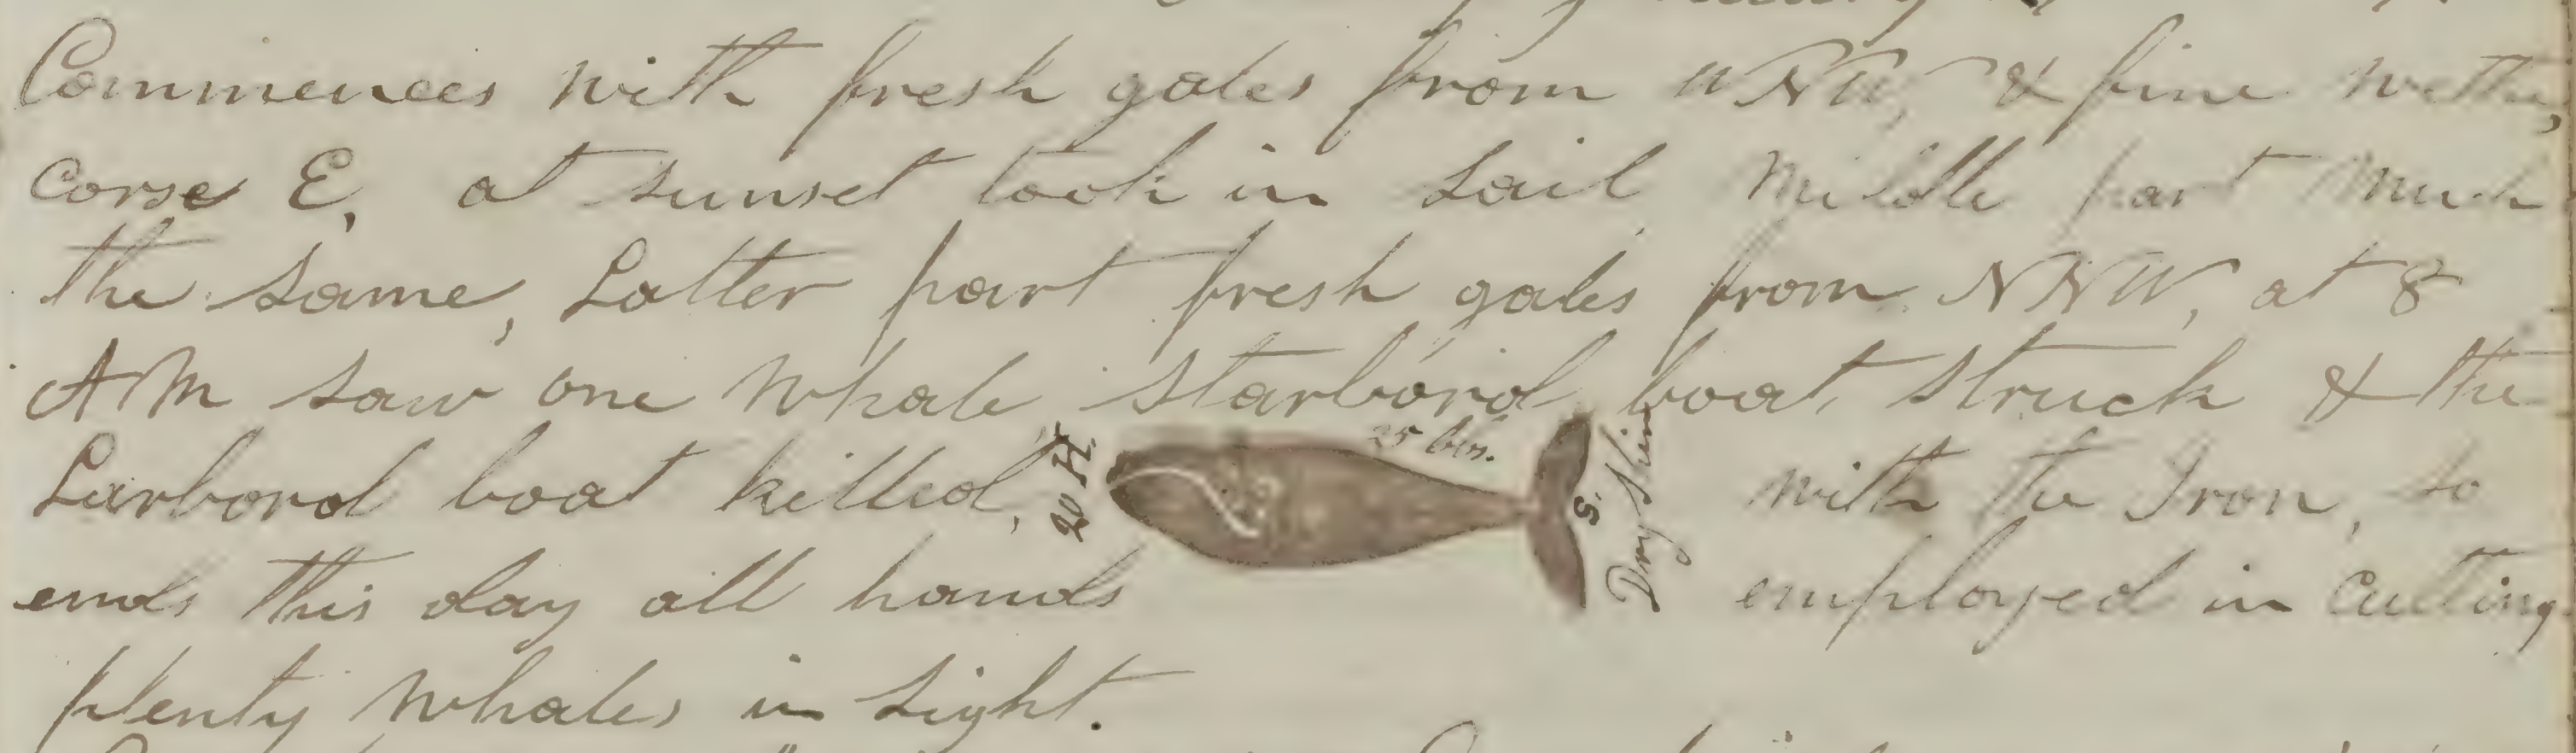 Commences with fresh gales from WNW, & fine wether,
Corse E, at sunset took in sail Middle part Much
the same, Latter part fresh gales from NNW, at 8
AM saw one Whale, starbord boat, struck & the
Larbord boat killed, with the Iron, so
20 H.
25 bls.
S.
Dry Skin
ends this day all hands employed in Cutting
plenty Whales in sight.